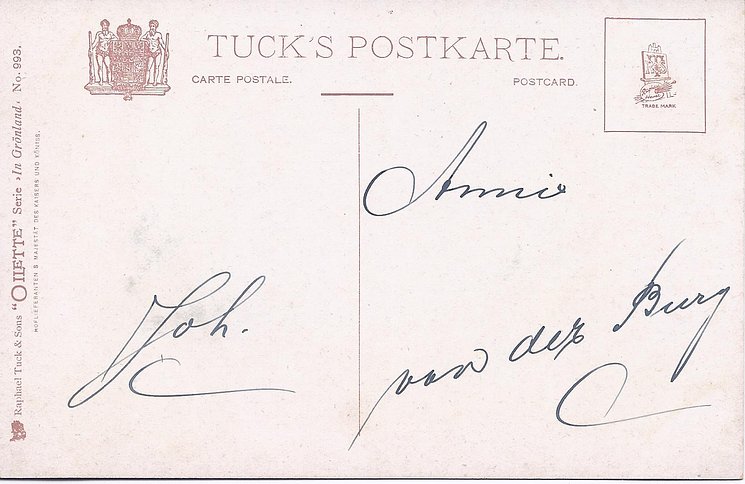 TUCK'S POSTKARTE.
CARTE POSTALE.
POSTCARD.
TRADE MARK
Annie
van der Burg
Joh.
Raphael Tuck & Sons "OILETTE" Serie ›In Grönland‹ No. 993.
HOFLIEFERANTEN S. MAJESTÄT DES KAISERS UND KÖNIGS.